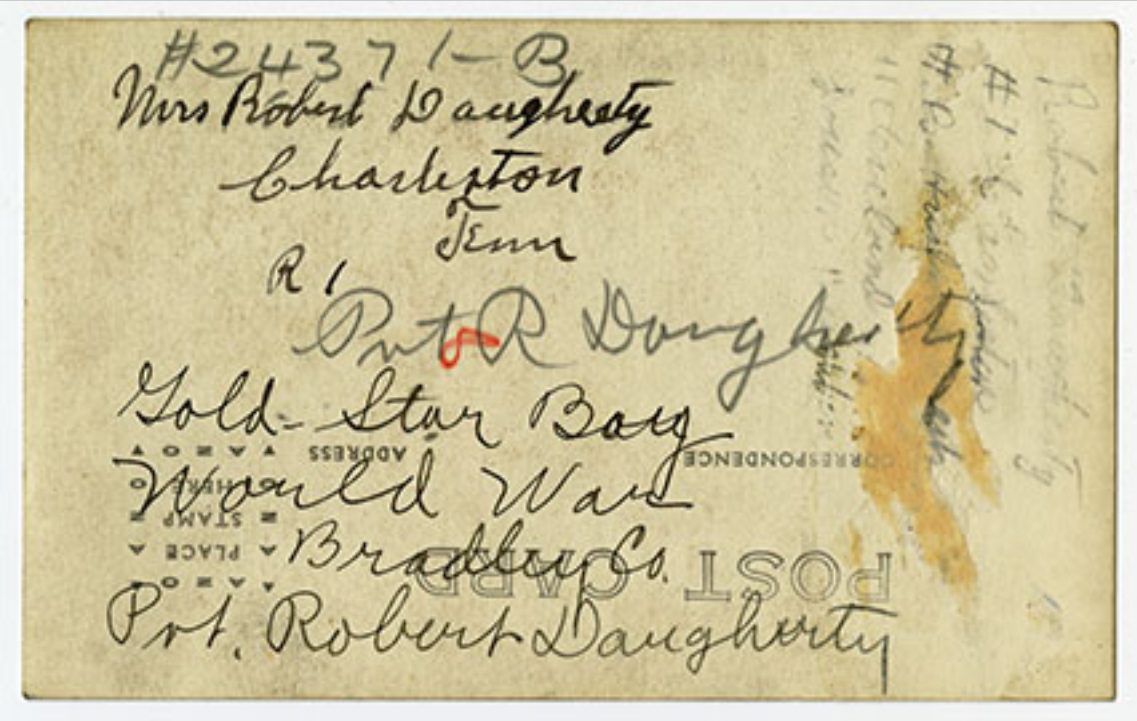 #24371-B
Mrs Robert Daugherty
Charleston
Tenn
R 1
Pvt R Dougherty
Gold-Star Boy
World War
Bradley Co.
Pvt. Robert Daugherty
POST CARD
CORRESPONDENCE
ADDRESS
AZO
PLACE
STAMP
HERE
AZO
Robert
#1